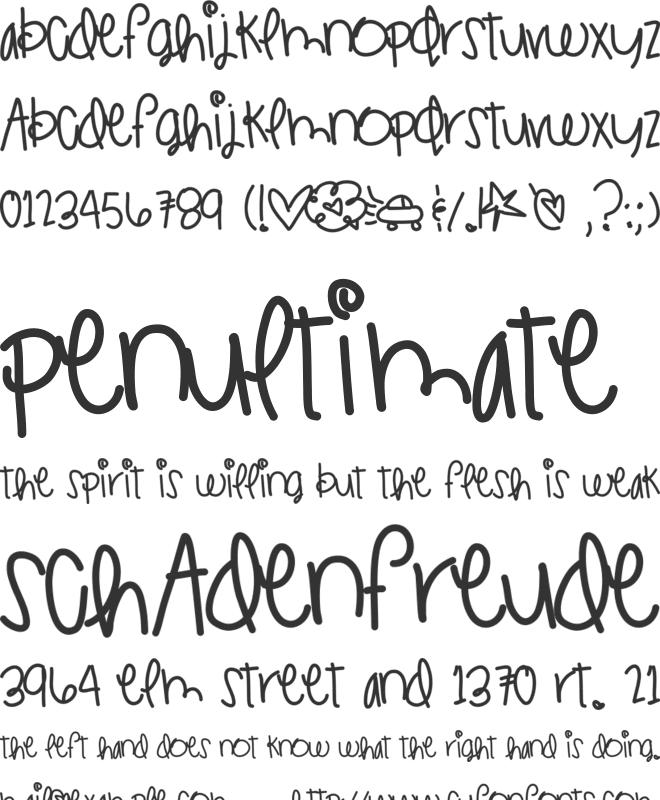 abcdefghijklmnopqrstuvwxyz
Abcdefghijklmnopqrstuvwxyz
0123456789 (! & / . ,?:;)
penultimate
the spirit is willing but the flesh is weak
schAdenfreude
3964 elm street and 1370 rt. 21
the left hand does not know what the right hand is doing.